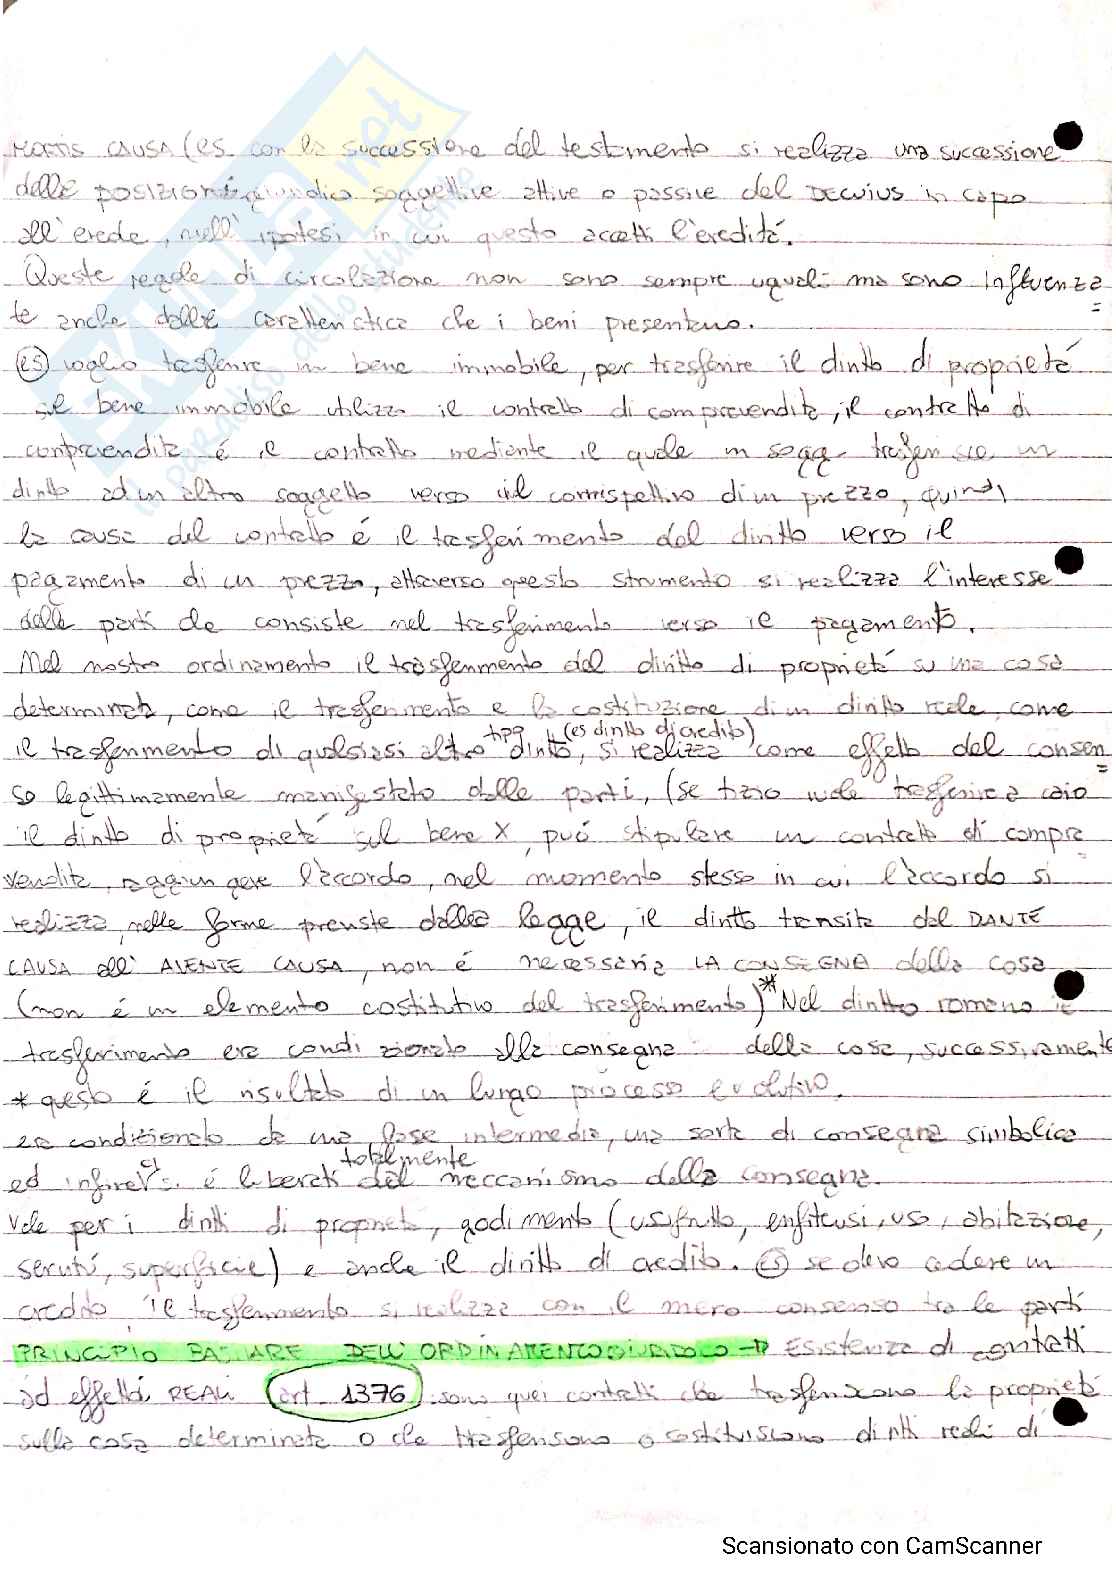 MORTIS CAUSA (es con la successione del testamento si realizza una successione
delle POSIZIONI giuridico soggettive attive o passive del DECUIUS in capo
all'erede, nell'ipotesi in cui questo accetti l'eredità.
Queste regole di circolazione non sono sempre uguali ma sono influenza
te anche dalle caratteristica che i beni presentano.
(es) voglio trasferire un bene immobile, per trasferire il diritto di proprietà
sul bene immobile utilizzo il contratto di compravendita, il contratto di
compravendita è il contratto mediante il quale un sogg trasferisce un
diritto ad un altro soggetto verso il corrispettivo di un prezzo, quindi
la causa del contratto è il trasferimento del diritto verso il
pagamento di un prezzo, attraverso questo strumento si realizza l'interesse
delle parti che consiste nel trasferimento verso il pagamento.
Nel nostro ordinamento il trasferimento del diritto di proprietà su una cosa
determinata, come il trasferimento e la costituzione di un diritto reale, come
il trasferimento di qualsiasi altro tipo diritto, (es diritto di credito) si realizza come effetto del consen
so legittimamente manifestato dalle parti, (se tizio vuole trasferire a caio
il diritto di proprietà sul bene X, può stipulare un contratto di compra
vendita, raggiungere l'accordo, nel momento stesso in cui l'accordo si
realizza, nelle forme previste dalla legge, il diritto transita dal DANTE
CAUSA all'AVENTE CAUSA, non è necessaria LA CONSEGNA della cosa
(non è un elemento costitutivo del trasferimento)* Nel diritto romano il
trasferimento era condizionato alla consegna della cosa, successivamente
* questo è il risultato di un lungo processo evolutivo.
era condizionato da una fase intermedia, una sorta di consegna simbolica
ed infine ci si è liberati totalmente dal meccanismo della consegna.
Vale per i diritti di proprietà, godimento (usufrutto, enfiteusi, uso, abitazione,
servitù, superficie) e anche il diritto di credito. (es) se devo cedere un
credito il trasferimento si realizza con il mero consenso tra le parti
PRINCIPIO BASILARE DELL'ORDINAMENTO GIURIDICO → Esistenza di contratti
ad effetti REALI (art 1376) sono quei contratti che trasferiscono la proprietà
sulla cosa determinata o che trasferiscono o costituiscono diritti reali di
SKUOLA.net
il paradiso dello studente
Scansionato con CamScanner